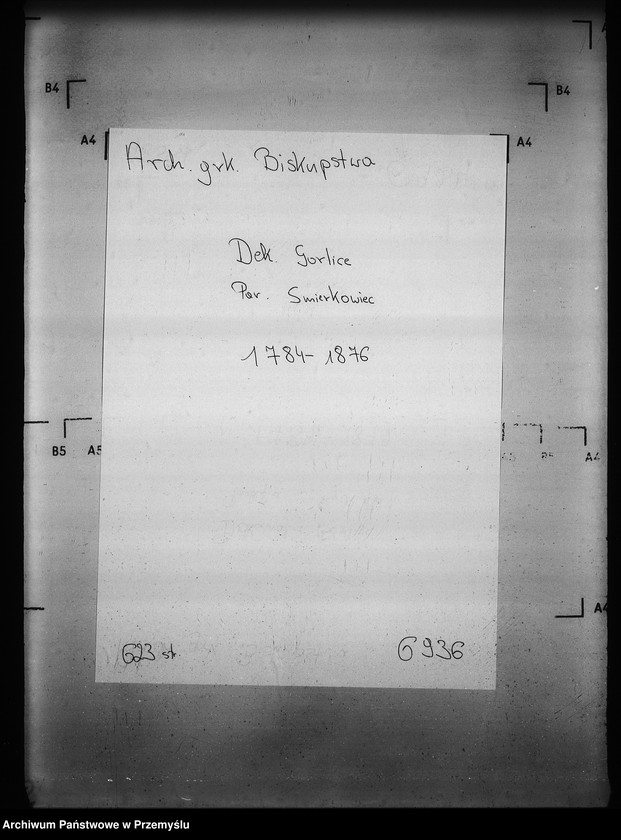 B4
B4
A4
A4
Arch. grk. Biskupstwa
Dek. Gorlice
Par. Smierkowiec
1784-1876
B5 A5
A4
A4
623 st.
6936
Archiwum Państwowe w Przemyślu